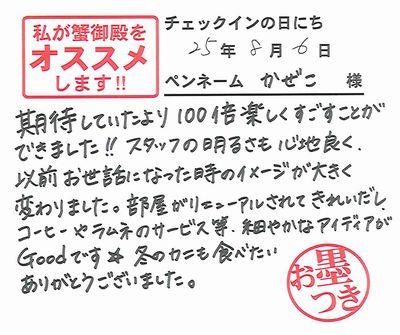 私が蟹御殿を
オススメ
します!!
チェックインの日にち
25年 8月 6日
ペンネーム かぜこ 様
期待していたより100倍楽しくすごすことが
できました!! スタッフの明るさも心地良く、
以前お世話になった時のイメージが大きく
変わりました。部屋がリニューアルされてきれいだし、
コーヒーやラムネのサービス等、細やかなアイディアが
Goodです★ 冬のカニも食べたい
ありがとうございました。
お墨つき